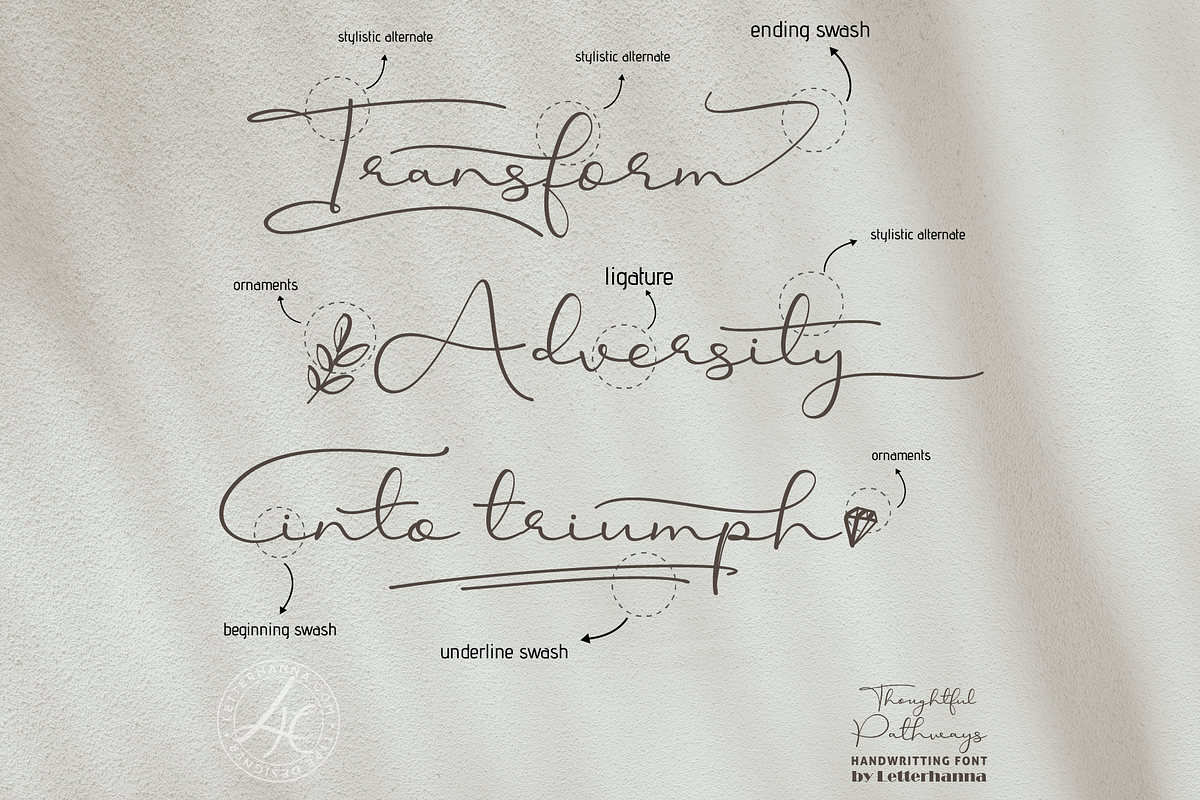 ending swash
stylistic alternate
stylistic alternate
Transform
stylistic alternate
ligature
ornaments
Adversity
ornaments
into triumph
beginning swash
underline swash
LETTERHANNA.COM
Thoughtful
Pathways
HANDWRITTING FONT
by Letterhanna